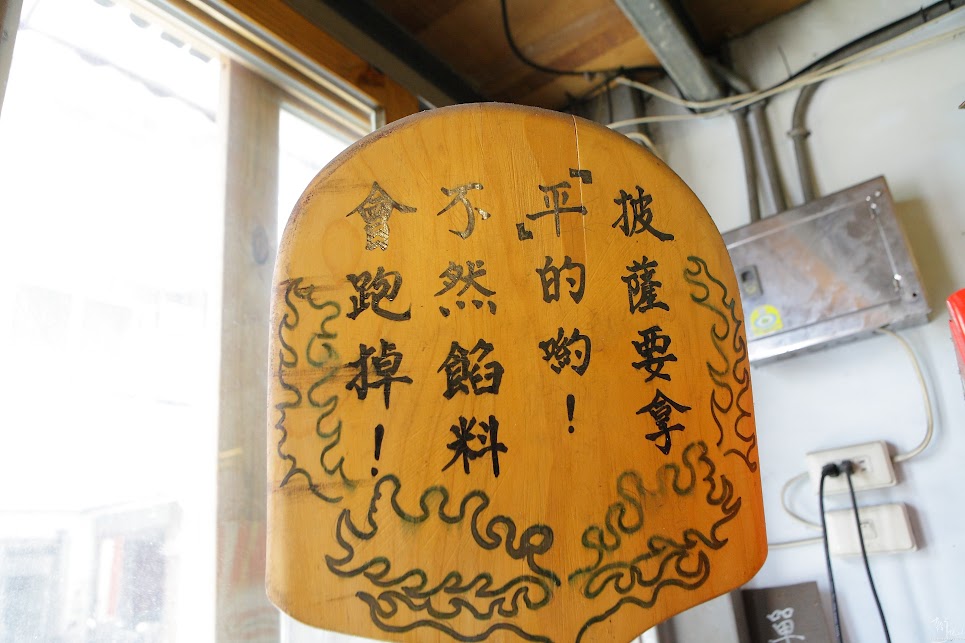 披薩要拿
「平」的喲！
不然餡料
會跑掉！